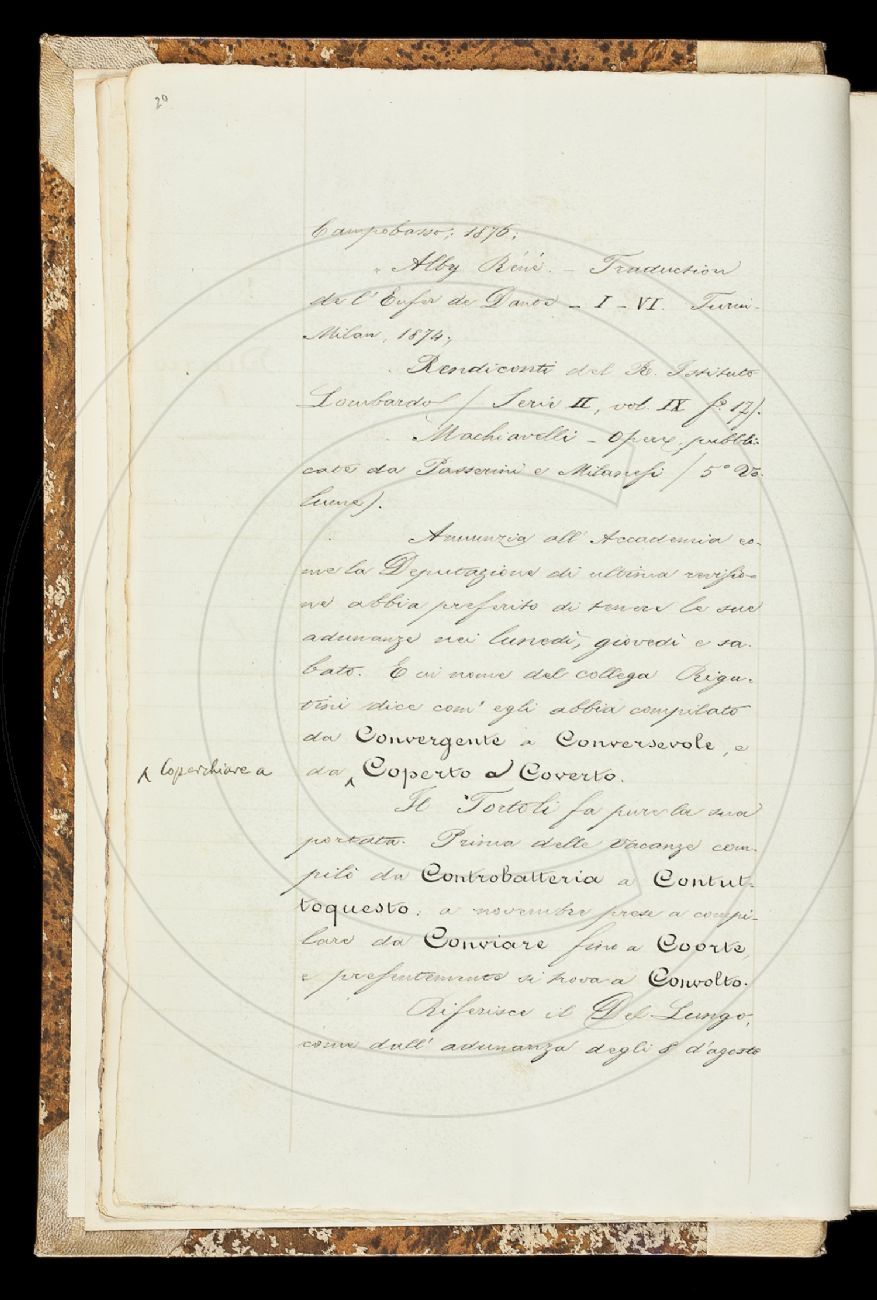 20
Campobasso, 1876;
" Alby Réné. – Traduction
de l'Enfer de Dante – I – VI. Turin-
Milan, 1874;
Rendiconti del R. Istituto
Lombardo (Serie II, vol. IX f.° 17).
Machiavelli – Opere, pubbli-
cate da Passerini e Milanesi (5° Vo-
lume).
Annunzia all'Accademia co-
me la Deputazione di ultima revisio-
ne abbia preferito di tenere le sue
adunanze nei lunedì, giovedì e sa-
bato. E in nome del collega Rigu-
tini dice com'egli abbia compilato
da Convergente a Conversevole, e
da ^ Coperto a Coverto.
^ Coperchiare a
Il Tortoli fa pure la sua
portata. Prima delle vacanze com-
pilò da Controbatteria a Contut-
toquesto: a novembre prese a compi-
lare da Conviare fino a Coorte,
e presentemente si trova a Convolto.
Riferisce il Del-Lungo,
come dall'adunanza degli 8 d'agosto